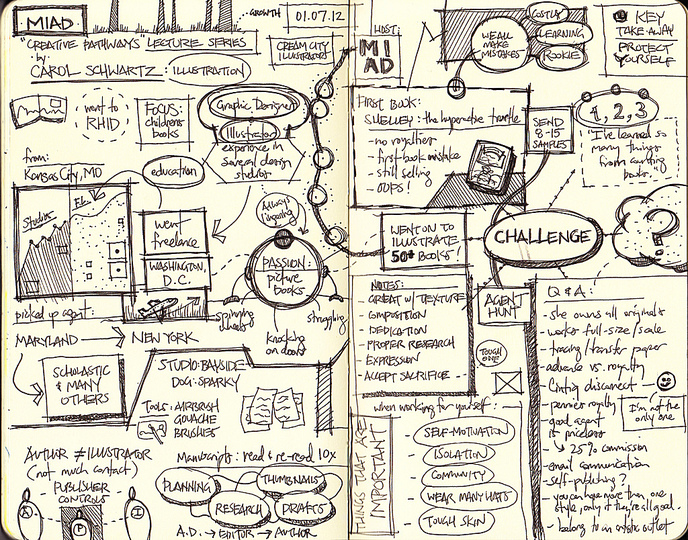 MIAD
GROWTH
01.07.12
"CREATIVE PATHWAYS" LECTURE SERIES
by:
CAROL SCHWARTZ: ILLUSTRATION
CREAM CITY
ILLUSTRATORS
went to
RHID
FOCUS:
children's
books
Graphic Designer
Illustrator
experience in
several design
studios
from:
KANSAS CITY, MO
education
Studios
went
freelance
WASHINGTON,
D.C.
Always
lingering
PASSION:
picture
books
spinning
wheels
knocking
on doors
struggling
picked up agent:
MARYLAND
NEW YORK
SCHOLASTIC
& MANY
OTHERS
STUDIO: BAYSIDE
DOG: SPARKY
TOOLS: AIRBRUSH
GOUACHE
BRUSHES
AUTHOR ≠ ILLUSTRATOR
(not much contact)
PUBLISHER
CONTROLS
A
P
I
Manuscripts: read & re-read 10x
PLANNING
THUMBNAILS
RESEARCH
DRAFTS
A.D. → EDITOR → AUTHOR
HOST:
MI
AD
WE ALL
MAKE
MISTAKES
COSTLY
LEARNING
ROOKIE
KEY
TAKE-AWAY
PROTECT
YOURSELF
FIRST BOOK:
SHELLEY: the hyperactive turtle
-no royalties
-first-book mistake
-still selling
OOPS!
SEND
8-15
SAMPLES
1, 2, 3
I've learned so
many things
from
books.
WENT ON TO
ILLUSTRATE
50+ BOOKS!
CHALLENGE
?
NOTES:
-GREAT W/ TEXTURE
-COMPOSITION
-DEDICATION
-PROPER RESEARCH
-EXPRESSION
-ACCEPT SACRIFICE
AGENT
HUNT
TOUGH
ONE
when working for yourself:
THINGS THAT ARE
IMPORTANT
- SELF-MOTIVATION
- ISOLATION
- COMMUNITY
- WEAR MANY HATS
- TOUGH SKIN
Q & A:
- she owns all originals
- works full-size/scale
- tracing/transfer paper
- advance vs. royalty
- disconnect
- royalty
- good agent
is priceless
↳ 25% commission
- email communication
- self-publishing?
- you can have more than one
style, only if they're all good.
- belong to an artistic outlet
I'm not the
only one.